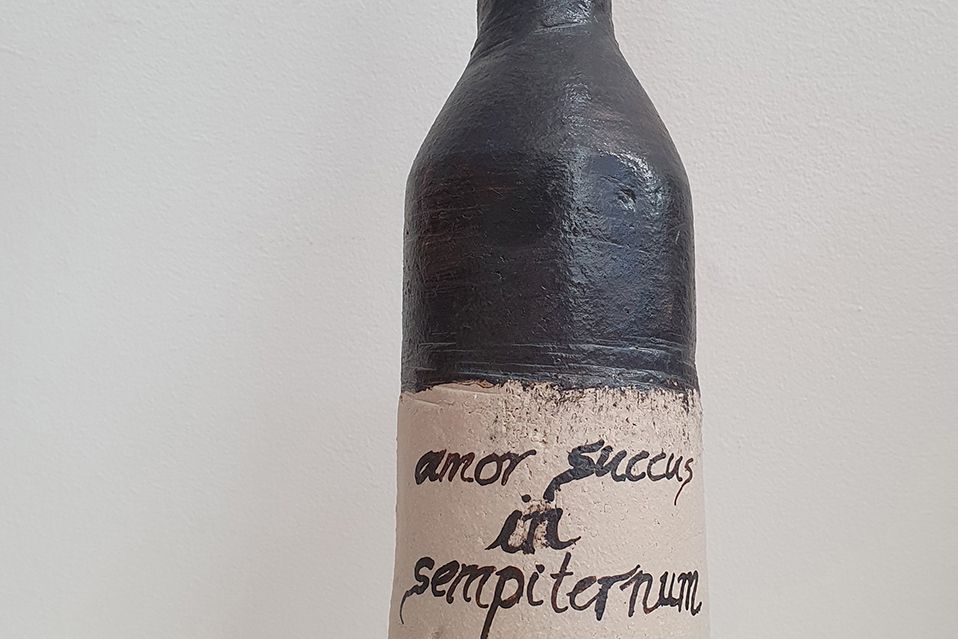 amor succus
in
sempiternum